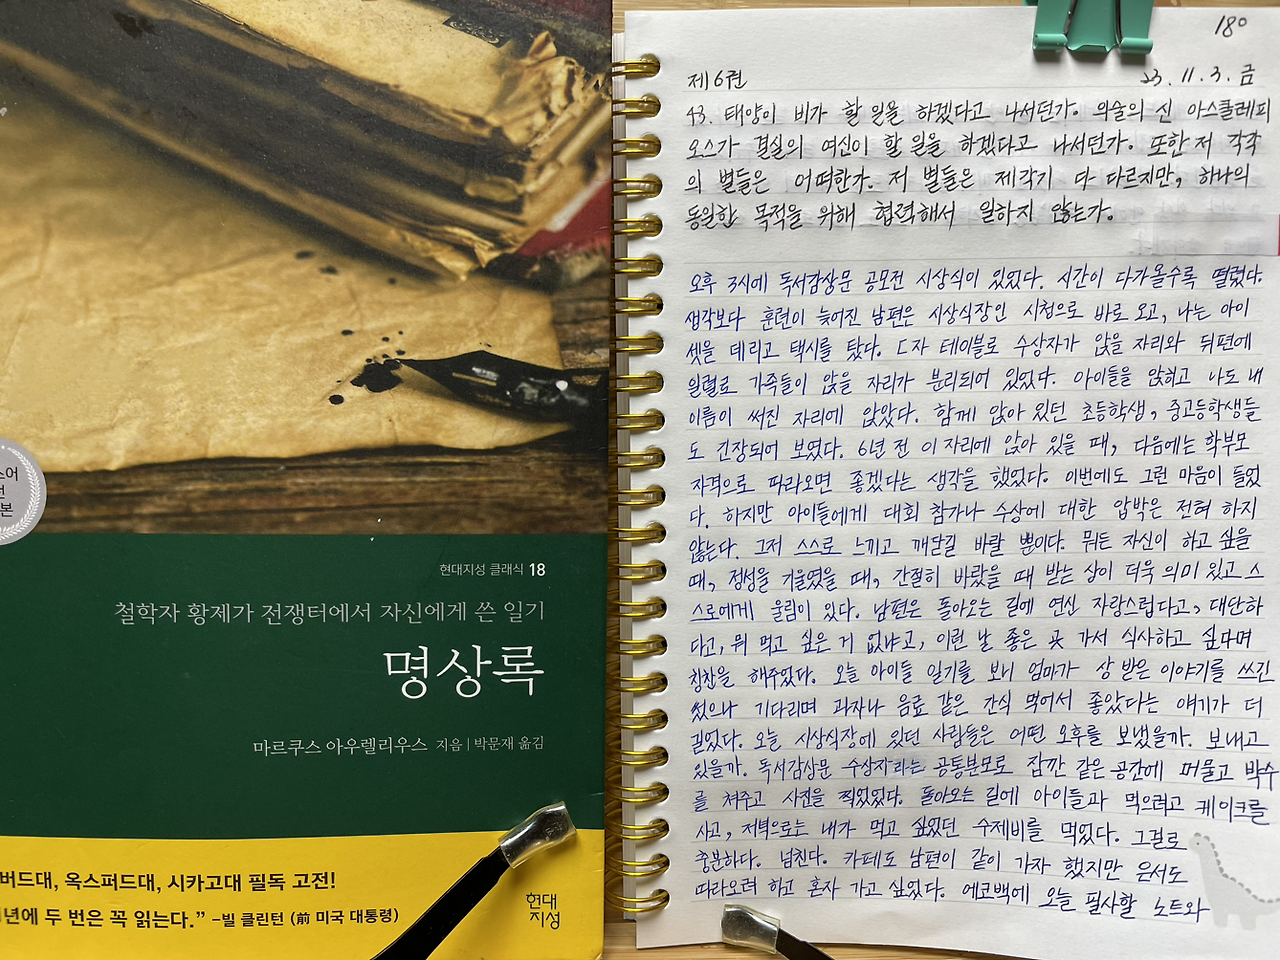 스어
전
본
현대지성 클래식 18
철학자 황제가 전쟁터에서 자신에게 쓴 일기
명상록
마르쿠스 아우렐리우스 지음 | 박문재 옮김
버드대, 옥스퍼드대, 시카고대 필독 고전!
년에 두 번은 꼭 읽는다.” -빌 클린턴 (前 미국 대통령)
현대
지성
18°
제6권 23. 11. 3. 금
43. 태양이 비가 할 일을 하겠다고 나서던가. 의술의 신 아스클레피
오스가 결실의 여신이 할 일을 하겠다고 나서던가. 또한 저 각각
의 별들은 어떠한가. 저 별들은 제각기 다 다르지만, 하나의
동일한 목적을 위해 협력해서 일하지 않는가.
오후 3시에 독서감상문 공모전 시상식이 있었다. 시간이 다가올수록 떨렸다.
생각보다 훈련이 늦어진 남편은 시상식장인 시청으로 바로 오고, 나는 아이
셋을 데리고 택시를 탔다. ㄷ자 테이블로 수상자가 앉을 자리와 뒤편에
일렬로 가족들이 앉을 자리가 분리되어 있었다. 아이들을 앉히고 나도 내
이름이 써진 자리에 앉았다. 함께 앉아 있던 초등학생, 중고등학생들
도 긴장되어 보였다. 6년 전 이 자리에 앉아 있을 때, 다음에는 학부모
자격으로 따라오면 좋겠다는 생각을 했었다. 이번에도 그런 마음이 들었
다. 하지만 아이들에게 대회 참가나 수상에 대한 압박은 전혀 하지
않는다. 그저 스스로 느끼고 깨닫길 바랄 뿐이다. 뭐든 자신이 하고 싶을
때, 정성을 기울였을 때, 간절히 바랐을 때 받는 상이 더욱 의미 있고 스
스로에게 울림이 있다. 남편은 돌아오는 길에 연신 자랑스럽다고, 대단하
다고, 뭐 먹고 싶은 거 없냐고, 이런 날 좋은 곳 가서 식사하고 싶다며
칭찬을 해주었다. 오늘 아이들 일기를 보니 엄마가 상 받은 이야기를 쓰긴
썼으나 기다리며 과자나 음료 같은 간식 먹어서 좋았다는 얘기가 더
길었다. 오늘 시상식장에 있던 사람들은 어떤 오후를 보냈을까. 보내고
있을까. 독서감상문 수상자라는 공통분모로 잠깐 같은 공간에 머물고 박수
를 쳐주고 사진을 찍었었다. 돌아오는 길에 아이들과 먹으려고 케이크를
사고, 저녁으로는 내가 먹고 싶었던 수제비를 먹었다. 그걸로
충분하다. 넘친다. 카페도 남편이 같이 가자 했지만 은서도
따라오려 하고 혼자 가고 싶었다. 에코백에 오늘 필사할 노트와